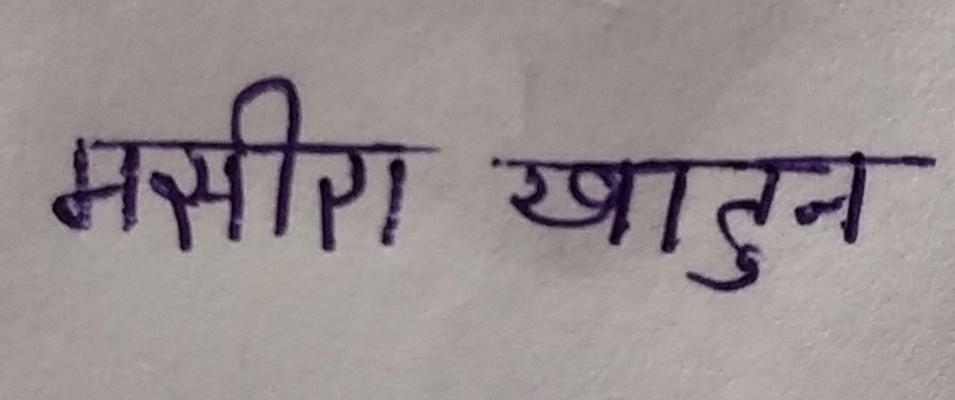 मसीरा खातुन